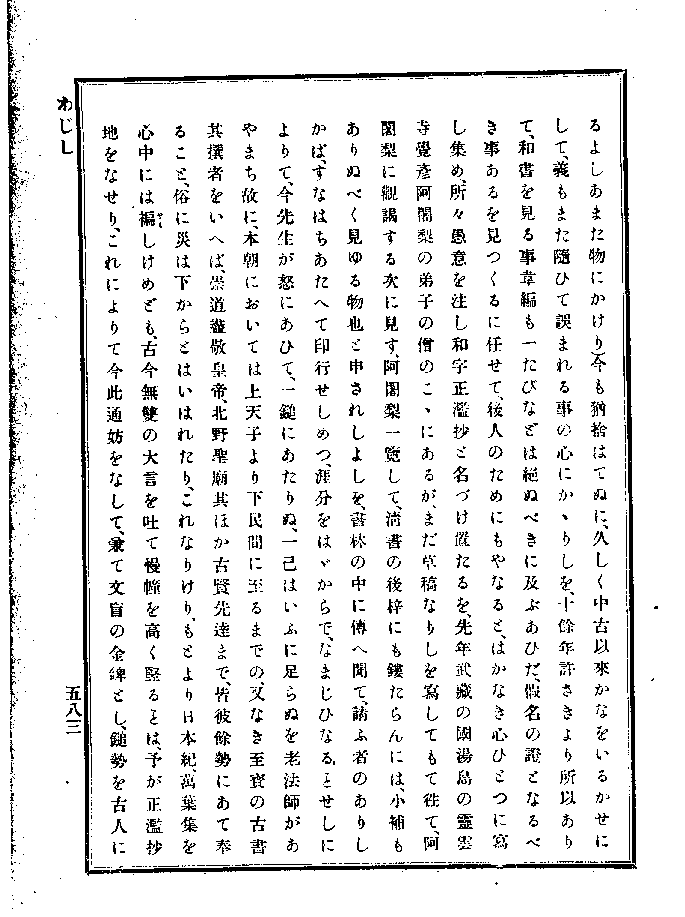 るよしあまた物にかけり、今も猶捨はてぬに、久しく中古以來かなをいるかせに
して、義もまた隨ひて誤まれる事の心にかヽりしを、十餘年許さきより所以あり
て、和書を見る事韋編も一たびなどは絕ぬべきに及ぶあひだ、假名の證となるべ
き事あるを見つくるに任せて、後人のためにもやなると、はかなき心ひとつに寫
し集め、所々愚意を注し和字正濫抄と名づけ置たるを、先年武藏の國湯島の靈雲
寺覺彥阿闍梨の弟子の僧のこヽにあるが、まだ草稿なりしを寫してもて徃て、阿
闍梨に覲謁する次に見す、阿闍梨一覽して、淸書の後梓にも鏤たらんには、小補も
ありぬべく見ゆる物也と申されしよしを、書林の中に傳へ聞て、請ふ者のありし
かば、すなはちあたへて印行せしめつ、涯分をはヾからで、なまじひなる、とせしに
よりて、今先生が怒にあひて、一鎚にあたりぬ、一己はいふに足らぬを老法師があ
やまち故に、本朝においては上天子より下民間に至るまでの、又なき至寶の古書
其撰者をいへば、崇道盡敬皇帝、北野聖廟其ほか古賢先達まで、皆彼餘勢にあて奉
ること、俗に災は下からとはいはれたり、これなりけり、もとより日本紀、萬葉集を
心中には褊しけめども、古今無雙の大言を吐て慢幢を高く竪るとは、予が正濫抄
地をなせり、これによりて今此通妨をなして、兼て文盲の金錍とし、鎚勢を古人に
わじし
五八三